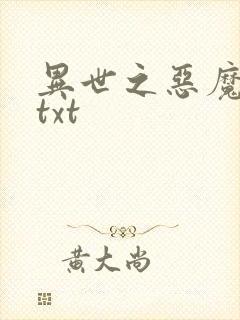 異世之惡魔
txt
黃大尚